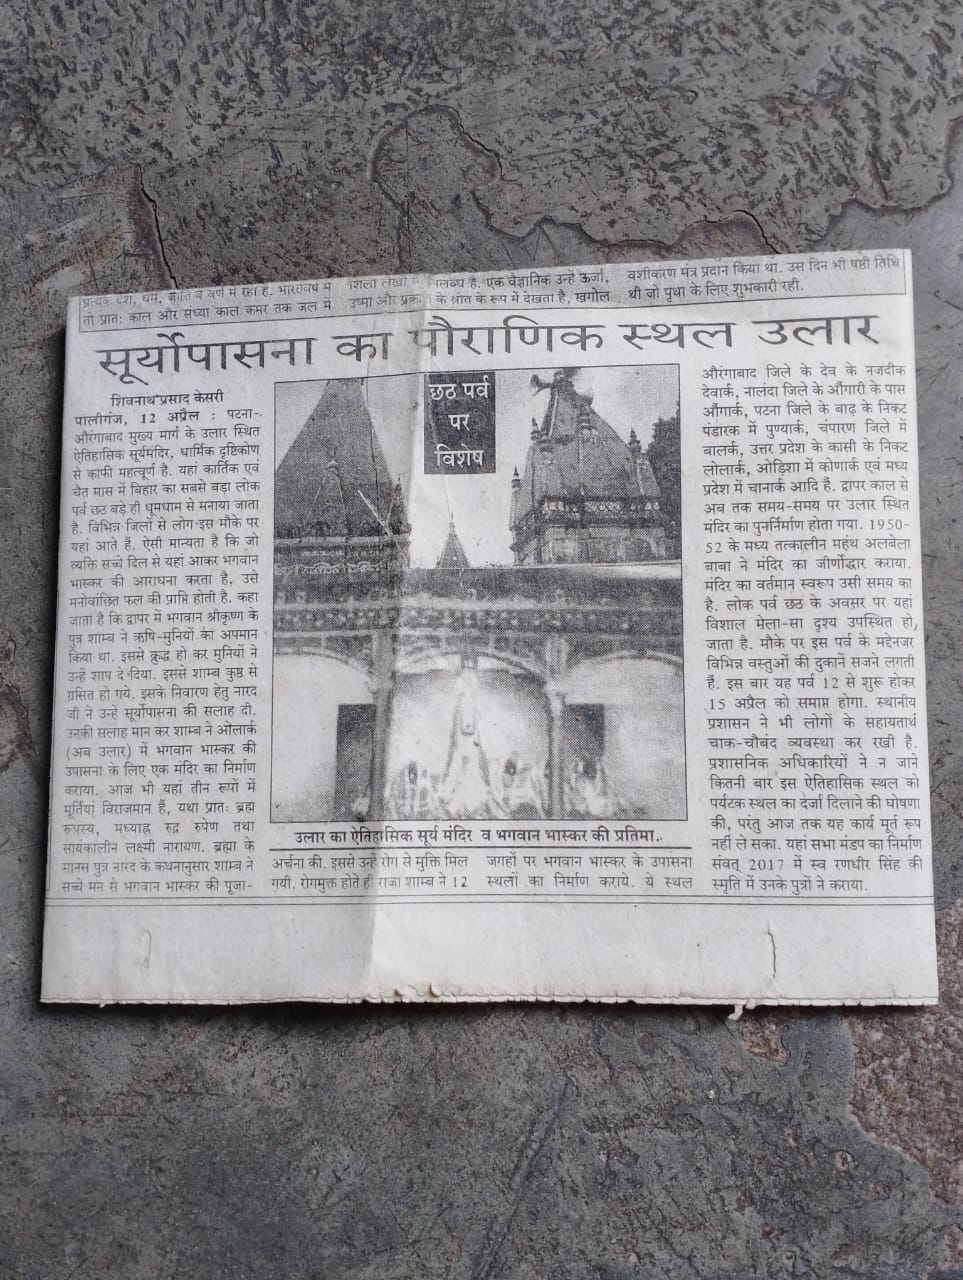 प्रत्येक देश, धर्म, जाति व वर्ण में रहा है. भारतवर्ष में
तो प्रातः काल और संध्या काल कमर तक जल में
शिला लेखों में उपलब्ध है. एक वैज्ञानिक उन्हें ऊर्जा,
उष्मा और प्रकाश के श्रोत के रूप में देखता है, खगोल
वशीकरण मंत्र प्रदान किया था. उस दिन भी षष्ठी तिथि
थी जो पृथा के लिए शुभकारी रही.
सूर्योपासना का पौराणिक स्थल उलार
शिवनाथ प्रसाद केसरी
पालीगंज, 12 अप्रैल : पटना-
औरंगाबाद मुख्य मार्ग के उलार स्थित
ऐतिहासिक सूर्यमंदिर, धार्मिक दृष्टिकोण
से काफी महत्वपूर्ण है. यहां कार्तिक एवं
चैत मास में बिहार का सबसे बड़ा लोक
पर्व छठ बड़े ही धूमधाम से मनाया जाता
है. विभिन्न जिलों से लोग इस मौके पर
यहां आते हैं. ऐसी मान्यता है कि जो
व्यक्ति सच्चे दिल से यहां आकर भगवान
भास्कर की आराधना करता है, उसे
मनोवांछित फल की प्राप्ति होती है. कहा
जाता है कि द्वापर में भगवान श्रीकृष्ण के
पुत्र शाम्ब ने ऋषि-मुनियों का अपमान
किया था. इससे क्रुद्ध हो कर मुनियों ने
उन्हें शाप दे दिया. इससे शाम्ब कुष्ठ से
ग्रसित हो गये. इसके निवारण हेतु नारद
जी ने उन्हें सूर्योपासना की सलाह दी.
उनकी सलाह मान कर शाम्ब ने ओलार्क
(अब उलार) में भगवान भास्कर की
उपासना के लिए एक मंदिर का निर्माण
कराया. आज भी यहां तीन रूपों में
मूर्तियां विराजमान हैं, यथा प्रातः ब्रह्म
रूपस्य, मध्याह्न रुद्र रुपेण तथा
सायंकालीन लक्ष्मी नारायण. ब्रह्मा के
मानस पुत्र नारद के कथनानुसार शाम्ब ने
सच्चे मन से भगवान भास्कर की पूजा-
छठ पर्व
पर
विशेष
उलार का ऐतिहासिक सूर्य मंदिर व भगवान भास्कर की प्रतिमा..
अर्चना की. इससे उन्हें रोग से मुक्ति मिल
गयी. रोगमुक्त होते ही राजा शाम्ब ने 12
जगहों पर भगवान भास्कर के उपासना
स्थलों का निर्माण कराये. ये स्थल
औरंगाबाद जिले के देव के नजदीक
देवार्क, नालंदा जिले के औंगारी के पास
औंगार्क, पटना जिले के बाढ़ के निकट
पंडारक में पुण्यार्क, चंपारण जिले में
बालर्क, उत्तर प्रदेश के कासी के निकट
लोलार्क, ओड़िशा में कोणार्क एवं मध्य
प्रदेश में चानार्क आदि हैं. द्वापर काल से
अब तक समय-समय पर उलार स्थित
मंदिर का पुनर्निर्माण होता गया. 1950-
52 के मध्य तत्कालीन महंथ अलबेला
बाबा ने मंदिर का जीर्णोद्धार कराया.
मंदिर का वर्तमान स्वरूप उसी समय का
है. लोक पर्व छठ के अवसर पर यहां
विशाल मेला-सा दृश्य उपस्थित हो
जाता है. मौके पर इस पर्व के मद्देनजर
विभिन्न वस्तुओं की दुकानें सजने लगती
हैं. इस बार यह पर्व 12 से शुरू होकर
15 अप्रैल को समाप्त होगा. स्थानीय
प्रशासन ने भी लोगों के सहायतार्थ
चाक-चौबंद व्यवस्था कर रखी है.
प्रशासनिक अधिकारियों ने न जाने
कितनी बार इस ऐतिहासिक स्थल को
पर्यटक स्थल का दर्जा दिलाने की घोषणा
की, परंतु आज तक यह कार्य मूर्त रूप
नहीं ले सका. यहां सभा मंडप का निर्माण
संवत् 2017 में स्व रणधीर सिंह की
स्मृति में उनके पुत्रों ने कराया.